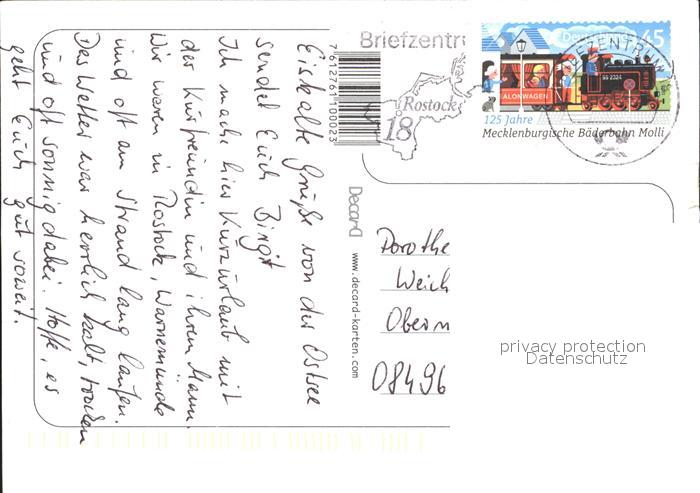 Eiskalte Grüße von der Ostsee
sendet Euch Birgit
Ich mache hier Kurzurlaub mit
der Kurfreundin und ihrem Mann.
Wir waren in Rostock, Warnemünde
und oft am Strand lang laufen.
Das Wetter war herrlich kalt, trocken
und oft sonnig dabei. Hoffe, es
geht Euch gut soweit.
7612761100023
Decard www.decard-karten.com
Briefzentr
Rostock
18
IEFZENTRUM
65
ALONWAGEN
99 2324
125 Jahre
Mecklenburgische Bäderbahn Molli
Dorothe
Weich
Obern
08496
privacy protection
Datenschutz